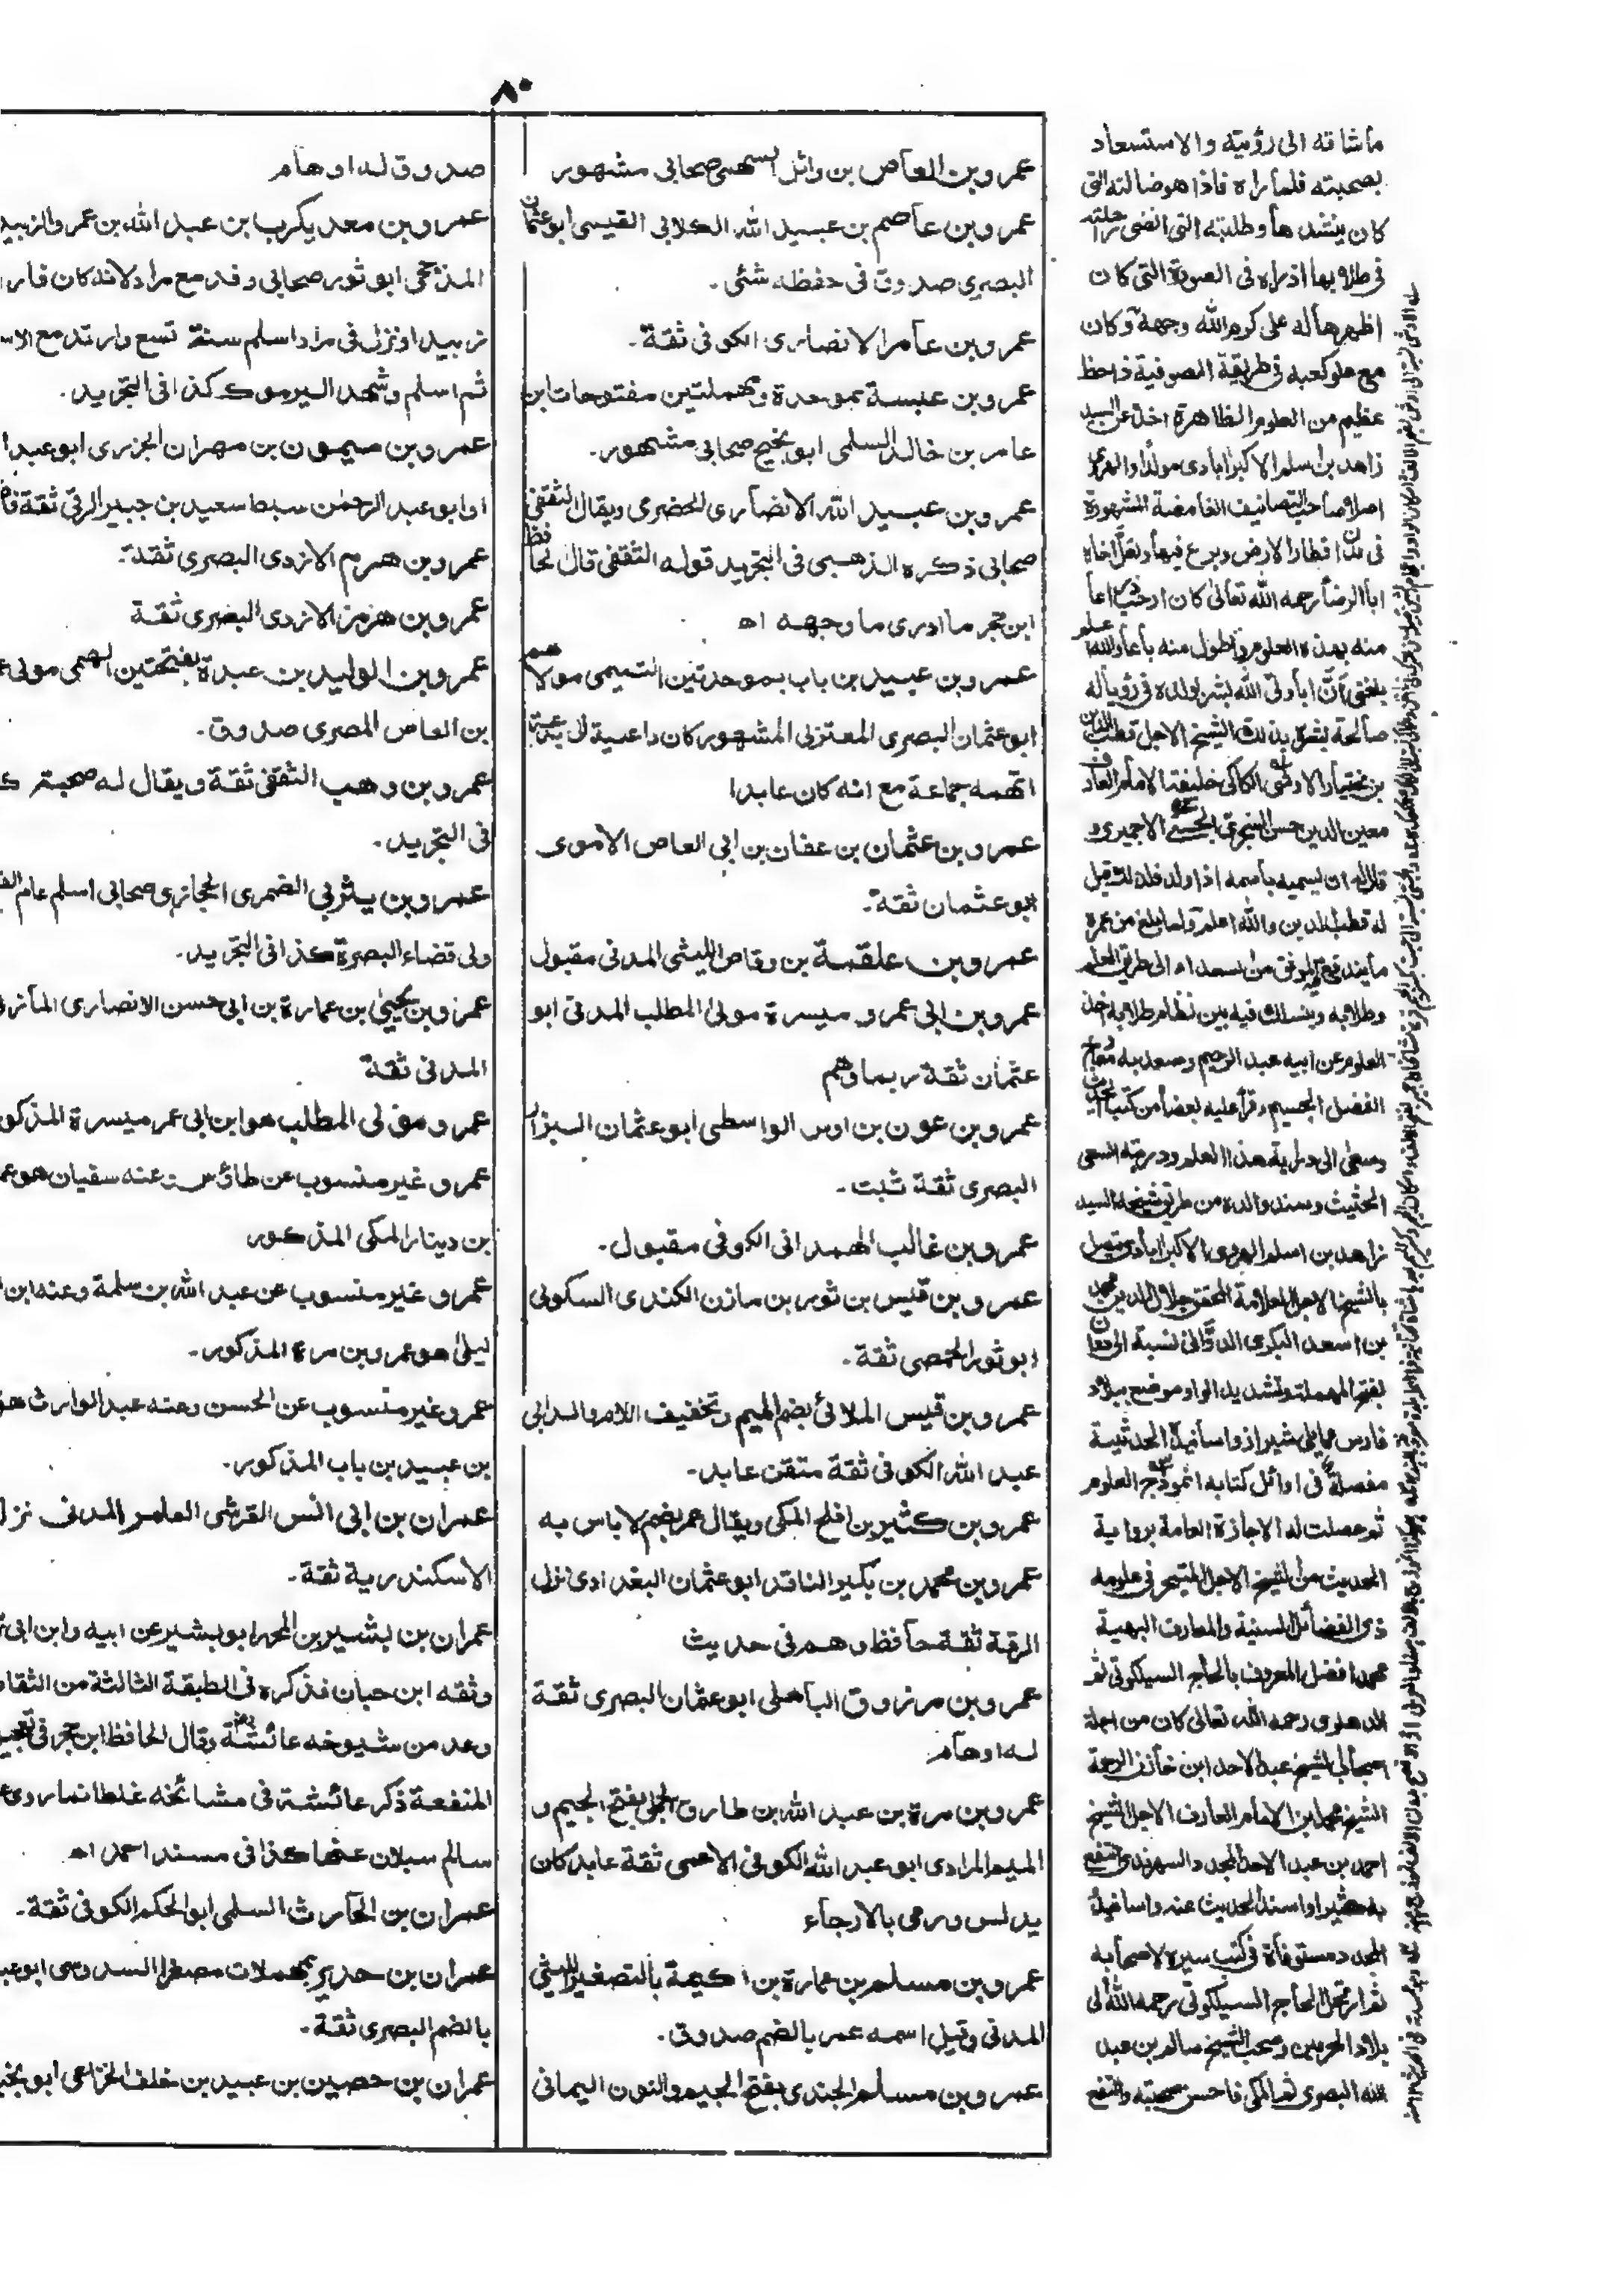 ٨٠
عمرو بن العاص بن وائل السهمى صحابى مشهور
عمرو بن عاصم بن عبيد الله الكلابى القيسى ابو عثمان
البصرى صدوق فى حفظه شئى۔
عمرو بن عامر الانصارى الكوفى ثقة۔
عمرو بن عبسة بموحدة ومهملتين مفتوحات ابن
عامر بن خالد السلمى ابو نجيح صحابى مشهور۔
عمرو بن عبيد الله الانصارى الحضرمى ويقال الثقفى
صحابى ذكره الذهبى فى التجريد قوله الثقفى قال الحافظ
ابن حجر ما ادرى ما وجهه اه
عمرو بن عبيد بن باب بموحدتين التميمى مولاهم
ابو عثمان البصرى المعتزلى المشهور كان داعية الى بدعته
اتهمه جماعة مع انه كان عابدا
عمرو بن عثمان بن عفان بن ابى العاص الاموى
ابو عثمان ثقة۔
عمرو بن علقمة بن وقاص الليثى المدنى مقبول
عمرو بن ابى عمرو ميسرة مولى المطلب المدنى ابو
عثمان ثقة ربما وهم
عمرو بن عون بن اوس الواسطى ابو عثمان البزار
البصرى ثقة ثبت۔
عمرو بن غالب الهمدانى الكوفى مقبول۔
عمرو بن قيس بن ثور بن مازن الكندى السكونى
ابو ثور الحمصى ثقة۔
عمرو بن قيس الملائى بضم الميم وتخفيف اللام والد ابى
عبد الله الكوفى ثقة متقن عابد۔
عمرو بن كثير بن افلح المكى ويقال عمر بضم لا باس به
عمرو بن محمد بن بكير الناقد ابو عثمان البغدادى نزل
الرقة ثقة حافظ وهم فى حديث
عمرو بن مرزوق الباهلى ابو عثمان البصرى ثقة
له اوهام
عمرو بن مرة بن عبد الله بن طارق الجملى بفتح الجيم و
الميم المرادى ابو عبد الله الكوفى الاعمى ثقة عابد كان
يدلس ورمى بالارجاء
عمرو بن مسلم بن عمارة بن اكيمة بالتصغير الليثى
المدنى وقيل اسمه عمر بالضم صدوق۔
عمرو بن مسلم الجندى بفتح الجيم والنون اليمانى
صدوق له اوهام
عمرو بن معد يكرب بن عبد الله بن عمرو الزبيد
المذحجى ابو ثور صحابى وفد مع مراد لانه كان فار
زبيد او نزل فى مراد اسلم سنة تسع وارتد مع الاس
ثم اسلم وشهد اليرموك كذا فى التجريد۔
عمرو بن ميمون بن مهران الجزرى ابو عبد ا
او ابو عبد الرحمٰن سبط سعيد بن جبير الرقى ثقة فا
عمرو بن هرم الازدى البصرى ثقة۔
عمرو بن هرمز الازدى البصرى ثقة
عمرو بن الوليد بن عبدة بفتحتين السهمى مولى ع
بن العاص المصرى صدوق۔
عمرو بن وهب الثقفى ثقة ويقال له صحبة ك
فى التجريد۔
عمرو بن يثربى الضمرى الحجازى صحابى اسلم عام الف
ولى قضاء البصرة كذا فى التجريد۔
عمرو بن يحيىٰ بن عمارة بن ابى حسن الانصارى المازنى
المدنى ثقة
عمرو مولى المطلب هو ابن ابى عمر ميسرة المذكو
عمرو غير منسوب عن طاؤس وعنه سفيان هو عم
بن دينار المكى المذكور
عمرو غير منسوب عن عبد الله بن سلمة وعنه ابن ا
ليلىٰ هو عمرو بن مرة المذكور۔
عمرو غير منسوب عن الحسن وعنه عبد الوارث هو
بن عبيد بن باب المذكور۔
عمران بن ابى انس القرشى العامر المدنى نزل
الاسكندرية ثقة۔
عمران بن بشير بن المحرر ابو بشير عن ابيه وابن ابى
وثقه ابن حبان فذكره فى الطبقة الثالثة من الثقا
وعد من شيوخه عائشة وقال الحافظ ابن حجر فى تعجيل
المنفعة ذكر عائشة فى مشائخه غلط انما روى ع
سالم سبلان عنها كذا فى مسند احمد اه
عمران بن الحارث السلمى ابو الحكم الكوفى ثقة۔
عمران بن حدير بمهملات مصغرا السدوسى ابو عب
بالضم البصرى ثقة۔
عمران بن حصين بن عبيد بن خلف الخزاعى ابو نجي
ما شاقه الى رؤيته والاستسعاد
بصحبته فلما راه فاذا هو ضالته التى
كان ينشدها وطلبته التى انضى راحلته
فى طلابها اذ راه فى الصورة التى كان
اظهرها له على كرم الله وجهه وكان
مع علو كعبه فى طريقة الصوفية ذا حظ
عظيم من العلوم الظاهرة اخذ عن السيد
زاهد بن اسلم الاكبرابادى مولدا والهروى
اصلا صاحب التصانيف الغامضة المشهورة
ابا الرضا رحمه الله تعالى كان
منه بهذه العلوم واطول منه باعا والله اعلم
بلغنى ان ابا ولى الله بشر بولده فى رؤيا له
صالحة بشره بذلك الشيخ الاجل قطب الدين
بن بختيار الاوشى الكاكى خليفة الامام العارف
معين الدين حسن السنجرى الاجميرى و
قال له ان يسميه باسمه اذا ولد فلذلك قيل
له قطب الدين والله اعلم ولما بلغ من عمره
العلوم عن ابيه عبد الرحيم وصعد به معارج
الفضل الجسيم وقرأ عليه بعضا من كتب الحديث
الحثيث وسند والده من طريق شيخه السيد
زاهد بن اسلم الهروى الاكبرابادى يتصل
بالشيخ الاجل العلامة المحقق جلال الدين محمد
بن اسعد البكرى الدوانى نسبة الى دوان
بفتح المهملة وتشديد الواو موضع ببلاد
فارس مما يلى شيراز واسانيده الحديثية
مفصلة فى اوائل كتابه انموذج العلوم
ثم حصلت له الاجازة العامة برواية
الحديث من الشيخ الاجل المتبحر فى علومه
ذى الفضائل السنية والمعارف البهية
محمد افضل المعروف بالحاج السيلكوتى ثم
الدهلوى رحمه الله تعالى كان من اجلة
اصحاب الشيخ عبد الاحد ابن خازن الرحمة
الشيخ محمد ابن الامام العارف الاجل الشيخ
احمد بن عبد الاحد المجدد السهرندى انتفع
به كثيرا واسند الحديث عنه واسانيد
المجدد مستوفاة فى كتب سيره لاصحابه
ثم ارتحل الحاج السيلكوتى رحمه الله الى
بلاد الحرمين وصحب الشيخ سالم بن عبد
الله البصرى ثم المكى فاحسن صحبته وانتفع